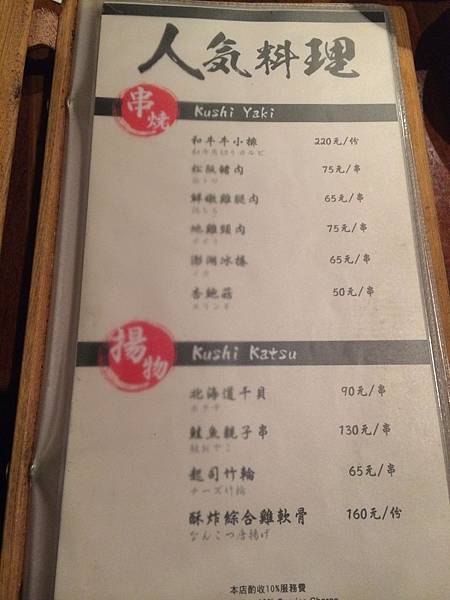 人気料理
串燒 Kushi Yaki
和牛牛小排 220元/份
和牛骨切りカルビ
松阪豬肉 75元/串
鮮嫩雞腿肉 65元/串
地雞頸肉 75元/串
澎湖冰捲 65元/串
イカ
杏鮑菇 50元/串
エリンギ
揚物 Kushi Katsu
北海道干貝 90元/串
ホタテ
鮭魚親子串 130元/串
鮭おやこ
起司竹輪 65元/串
チーズ竹輪
酥炸綜合雞軟骨 160元/份
なんこつ唐揚げ
本店酌收10%服務費